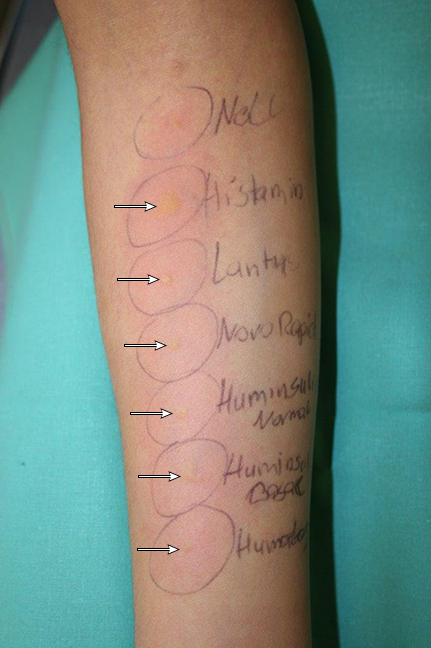 NaCl
Histamin
Lantus
NovoRapid
Huminsulin
Normal
Huminsul
Basal
Humalog